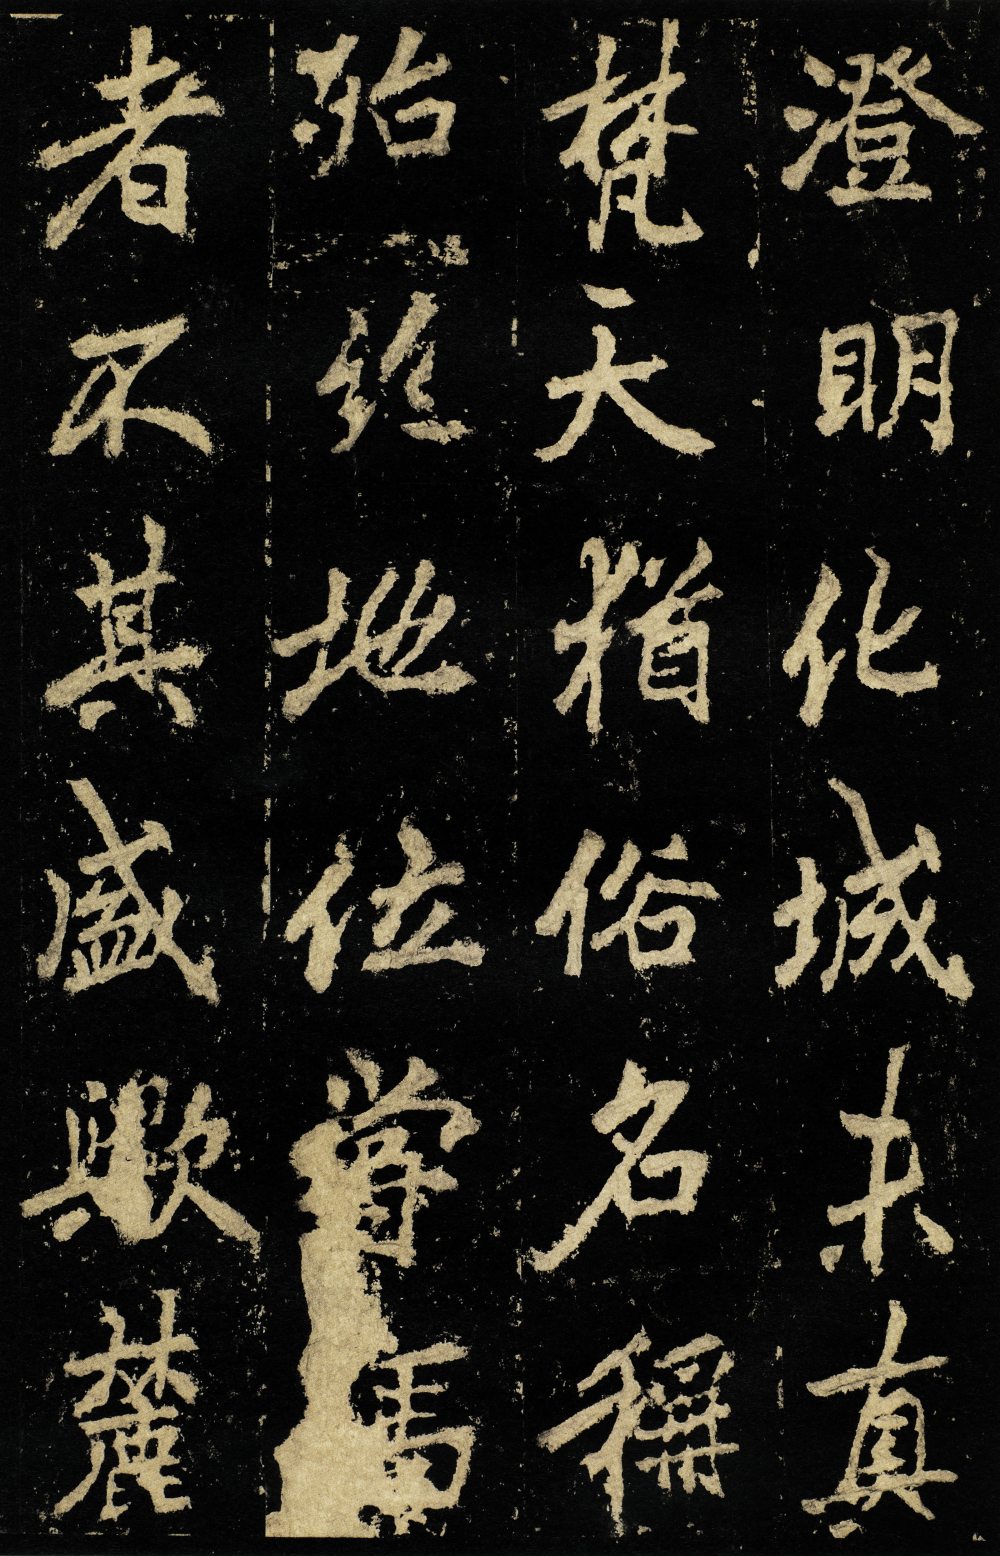 澄明化城未真
梵天猶俗名稱
殆絕地位嘗高
者不其盛歟麓